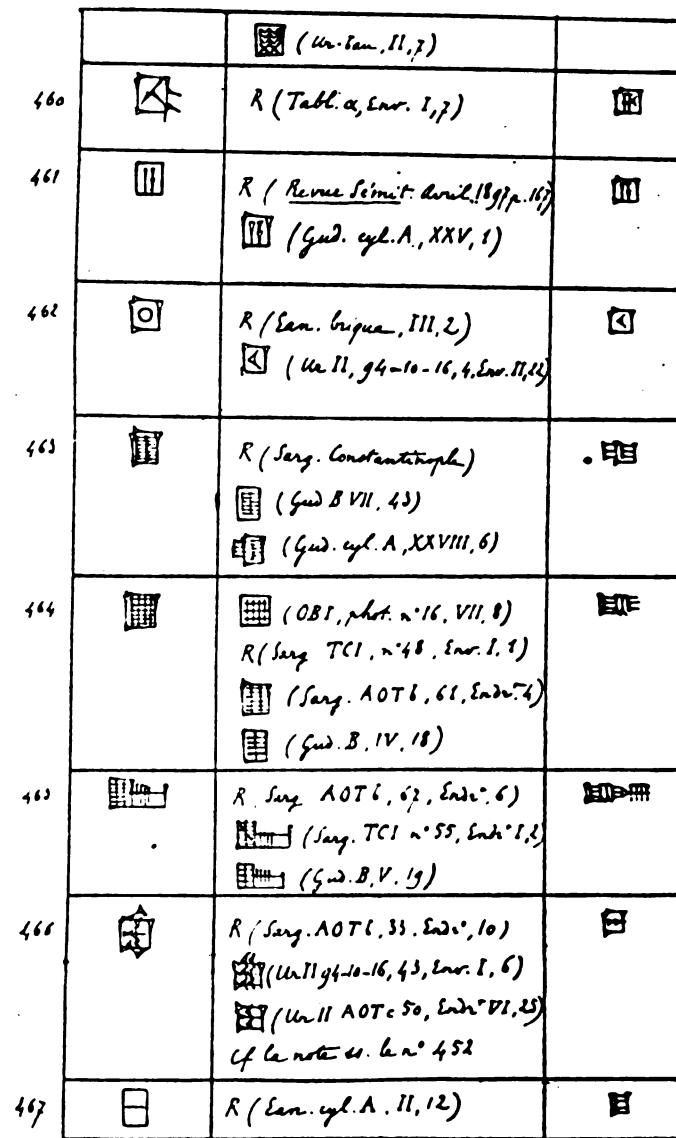 (Ur-Bau, II, 7)
460 R (Tabl. α, Env. I, 7)
461 R (Revue Sémit. Avril 1897 p. 167)
(Gud. cyl. A, XXV, 1)
462 R (Ean. brique, III, 2)
(Ur II, 94-10-16, 4, Env. II, 22)
463 R (Sarg. Constantinople)
(Gud B VII, 43)
(Gud. cyl. A, XXVIII, 6)
464 (OBI, phot. n° 16, VII, 8)
R (Sarg TCI, n° 48, Env. I, 1)
(Sarg. AOTb, 61, Endrt. 4)
(Gud. B, IV, 18)
465 R Sarg AOTb, 67, Endrt, 6)
(Sarg. TCI n° 55, Endrt I, 2)
(Gud. B, V. 19)
466 R (Sarg. AOTb, 33. Endrt, 10)
(Ur II 94-10-16, 43, Env. I, 6)
(Ur II AOTc 50, Endrt VI, 25)
cf la note ss. le n° 452
467 R (Ean. cyl. A, II, 12)